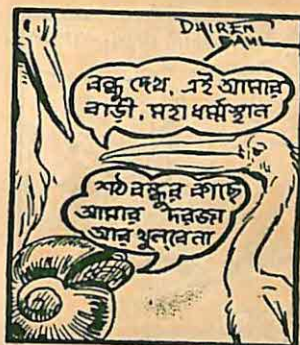 DHIREN
BAHL
বন্ধু দেখ, এই আমার
বাড়ী, মহা ধর্ম্মস্থান
শঠ বন্ধুর কাছে
আমার দরজা
আর খুলবে না